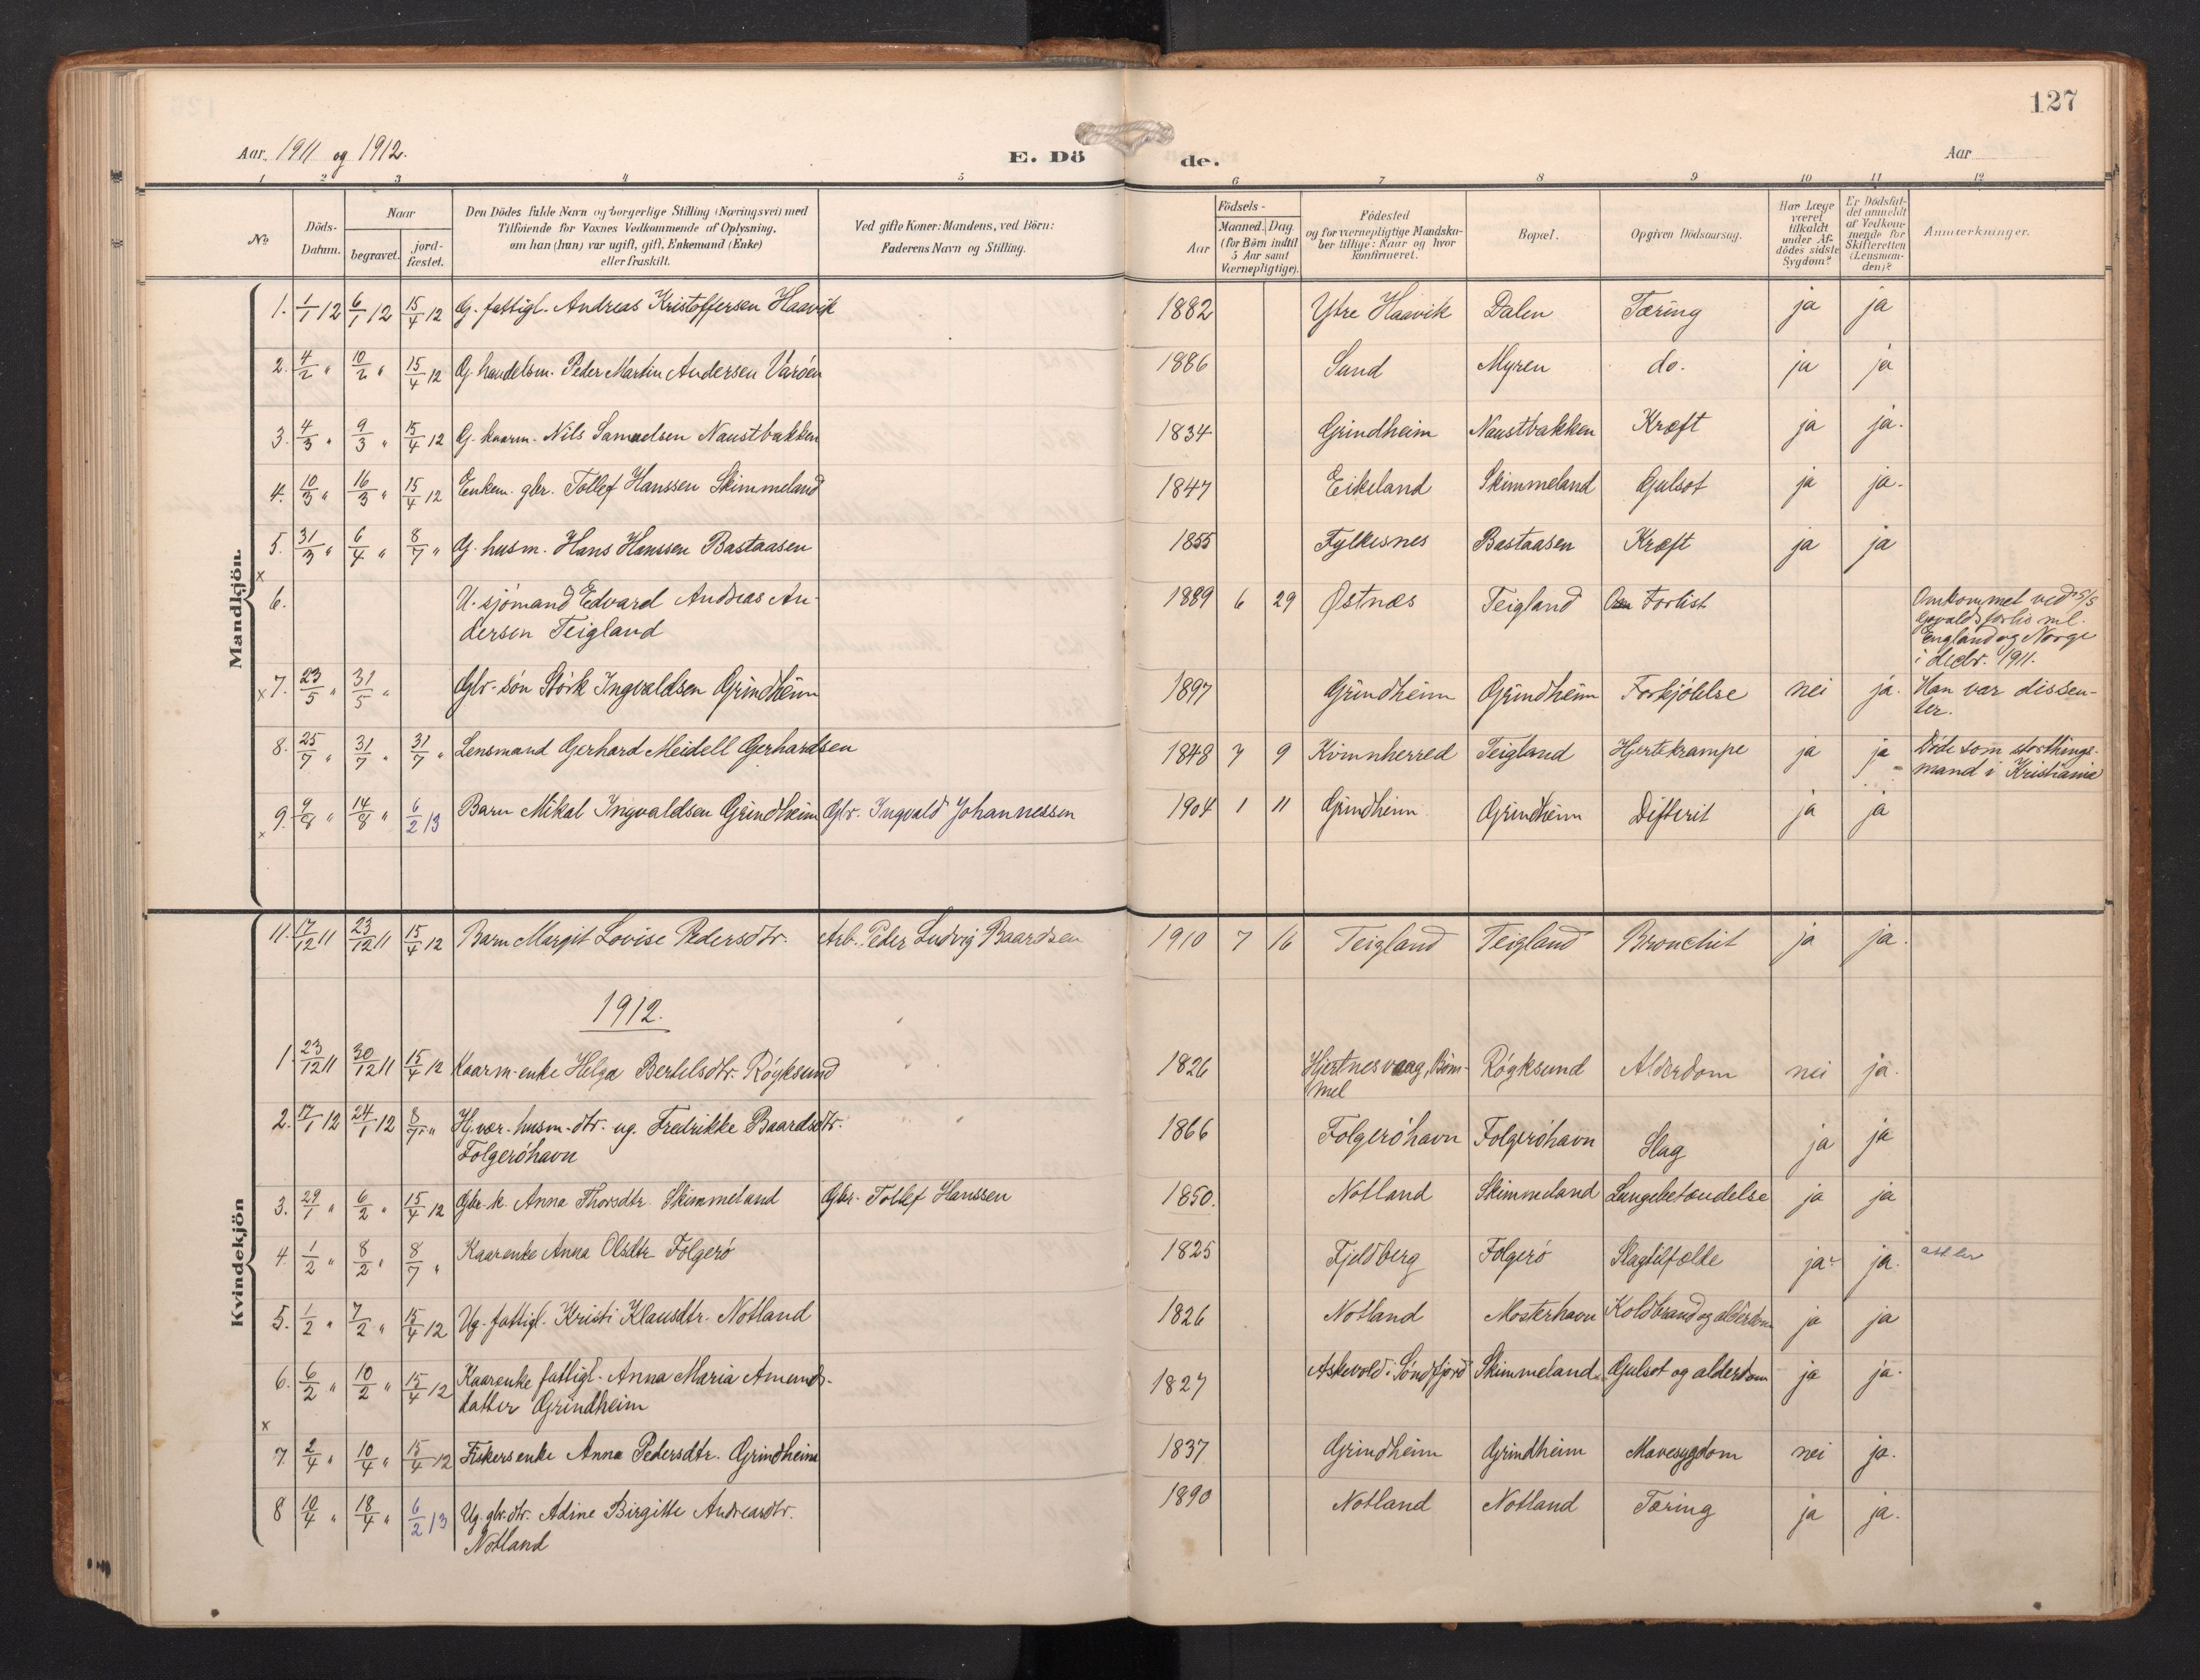 127
Aar 1911 og 1912.
E. Dö de.
Aar
1 2 3 4 5 6 7 8 9 10 11 12
No
Döds-Datum.
Naar
begravet. jord-fæstet.
Den Dödes fulde Navn og borgerlige Stilling (Næringsvei) med
Tilföiende for Voxnes Vedkommende af Oplysning,
om han (hun) var ugift, gift, Enkemand (Enke)
eller fraskilt.
Ved gifte Koner: Mandens, ved Börn:
Faderens Navn og Stilling.
Födsels-
Aar
Maaned. Dag
(for Börn indtil
5 Aar samt
Værnepligtige).
Födested
og for værnepligtige Mandska-
ber tillige: Naar og hvor
konfirmeret.
Bopæl.
Opgiven Dödsaarsag.
Har Læge
været
tilkaldt
under Af-
dödes sidste
Sygdom?
Er Dödsfal-
det anmeldt
af Vedkom-
mende for
Skifteretten
(Lensman-
den)?
Anmærkninger.
Mandkjön.
1. 1/1 12 6/1 12 15/4 12 G. fattigl. Andreas Kristoffersen Haavik 1882 Ytre Haavik Dalen Tæring ja ja
2. 4/2 " 10/2 " 15/4 12 G. handelsm. Peder Martin Andersen Varöen 1886 Sund Myren do. ja ja
3. 4/3 " 9/3 " 15/4 12 G. kaarm. Nils Samuelsen Naustbakken 1834 Grindheim Naustbakken Kræft ja ja.
4. 10/3 " 16/3 " 15/4 12 Enkem. gbr. Tollef Hanssen Skimmeland 1847 Eikeland Skimmeland Gulsot ja ja.
5. 31/3 " 6/4 " 8/7 " G. husm. Hans Hanssen Bastaasen 1855 Fylkesnes Bastaasen Kræft ja ja
x
6. U. sjömand Edvard Andreas An- 1889 6 29 Østnæs Teigland Forlist Omkommet ved s/s
dersen Teigland
forlis ml.
England og Norge
i decbr. 1911.
x 7. 23/5 " 31/5 " Gbr. sön Störk Ingvaldsen Grindheim 1897 Grindheim Grindheim Forkjölelse nei ja. Han var dissen-
ter.
8. 25/7 " 31/7 " 31/7 " Lensmand Gerhard Meidell Gerhardsen 1848 7 9 Kvinnherred Teigland Hjertekrampe ja ja Döde som storthings-
mand i Kristiania
x 9. 9/8 " 14/8 " 6/2 13 Barn Mikal Ingvaldsen Grindheim Gbr. Ingvald Johannessen 1904 1 11 Grindheim Grindheim Difterit ja ja
Kvindekjön
11. 17/12 11 23/12 11 15/4 12 Barn Margit Lovise Pedersdtr. Arb. Peder Ludvig Baardsen 1910 7 16 Teigland Teigland Bronchit ja ja.
1912.
1. 23/12 11 30/12 11 15/4 12 Kaarm-enke Helga Bertelsdtr. Röyksund 1826 Hjertnesvaag, Böm- Röyksund Alderdom nei ja.
mel
2. 17/1 12 24/1 12 8/7 " Hj.vær. husm-dtr. ug. Fredrikke Baardsdtr. 1866 Folgeröhavn Folgeröhavn Slag ja ja
Folgeröhavn
3. 29/1 " 6/2 " 15/4 12 Gbr. k. Anna Thorsdtr. Skimmeland Gbr. Tollef Hanssen 1850. Notland Skimmeland Lungebetændelse ja ja
4. 1/2 " 8/2 " 8/7 " Kaarenke Anna Olsdtr. Folgerö 1825 Fjeldberg Folgerö Slagtilfælde ja ja.
5. 1/2 " 7/2 " 15/4 12 Ug. fattigl. Kristi Klausdtr. Notland 1826 Notland Mosterhavn Koldbrand og alderdom ja ja
6. 6/2 " 10/2 " 15/4 12 Kaarenke fattigl. Anna Maria Amunds- 1827 Askevold i Söndfjord Skimmeland. Gulsot og alderdom ja ja.
datter Grindheim
x
7. 2/4 " 10/4 " 15/4 12 Fiskersenke Anna Pedersdtr. Grindheim 1837 Grindheim Grindheim Mavesygdom nei ja.
8 10/4 " 18/4 " 6/2 13 Ug. gbr. dtr. Adine Birgitte Andreasdtr. 1890 Notland Notland Tæring ja ja.
Notland